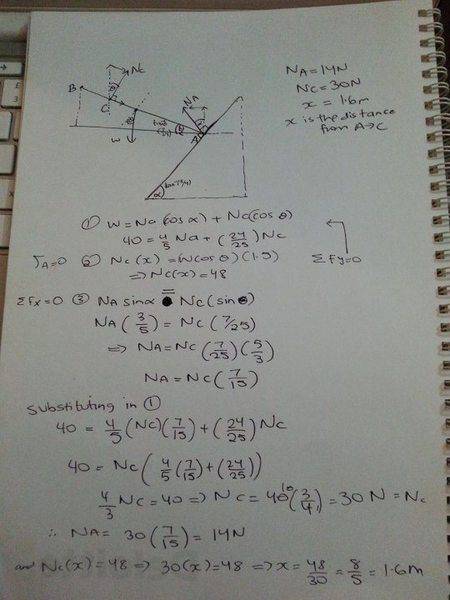 NA = 14N
NC = 30N
x = 1.6m
x is the distance
from A→C
NC
B
C
NA
W
A
α
tan⁻¹(3/4)
① W = NA(cos α) + NC(cos θ)
40 = 4/5 NA + (24/25) NC
ΣFy=0
τA=0 ② NC(x) = W(cos θ)(1.5)
⇒ NC(x) = 48
ΣFx=0 ③ NA sin α = NC(sin θ)
NA(3/5) = NC(7/25)
⇒ NA = NC(7/25)(5/3)
NA = NC(7/15)
Substituting in ①
40 = 4/5(NC)(7/15) + (24/25)NC
40 = NC(4/5(7/15) + (24/25))
4/3 NC = 40 ⇒ NC = 40 10 (3/4) = 30N = NC
∴ NA = 30(7/15) = 14N
and NC(x) = 48 ⇒ 30(x) = 48 ⇒ x = 48/30 = 8/5 = 1.6m